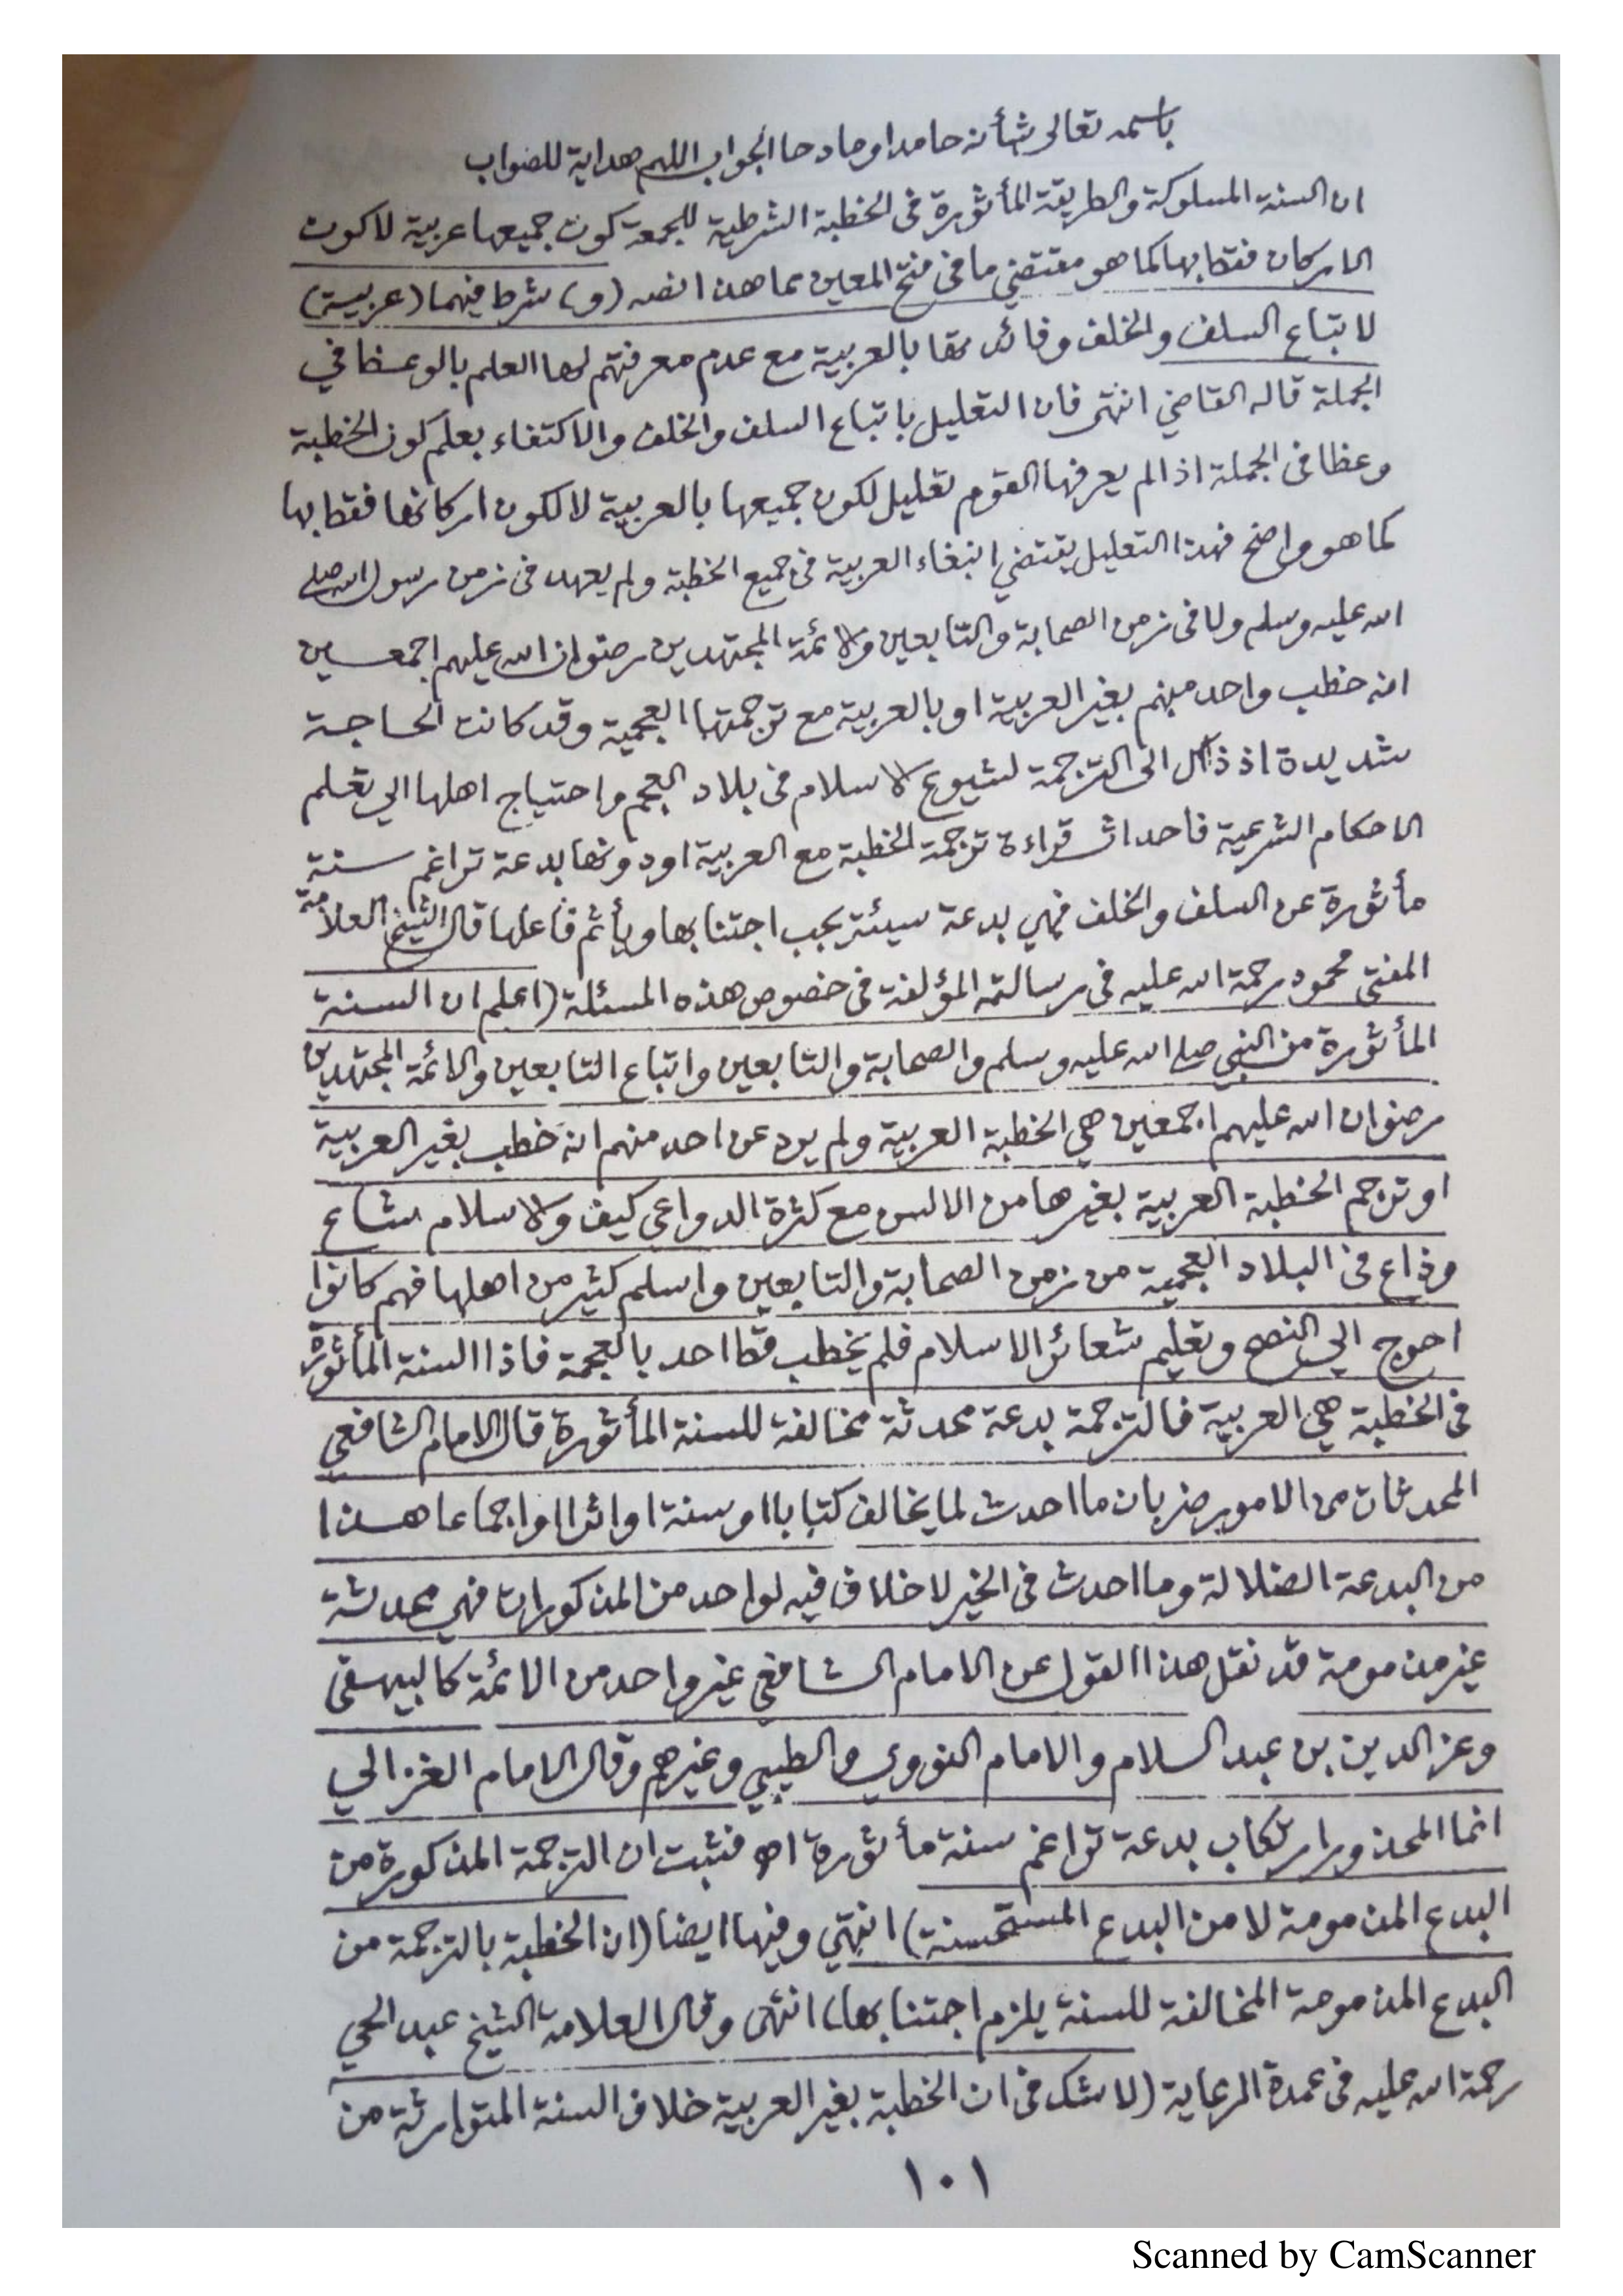 باسمه تعالى شأنه حامدا ومادحا الجواب اللهم هداية للصواب
ان السنة المسلوكة والطريقة المأثورة فى الخطبة الشرطية للجمعة كون جميعها عربية لا كون
الاركان فقط بها كما هو مقتضي ما فى فتح المعين بما هذا نصه (و) شرط فيهما (عربية)
لاتباع السلف والخلف وفائدتها بالعربية مع عدم معرفتهم لها العلم بالوعظ في
الجملة قاله القاضي انتهى فان التعليل باتباع السلف والخلف والاكتفاء بعلم كون الخطبة
وعظا فى الجملة اذا لم يعرفها القوم تعليل لكون جميعها بالعربية لا لكون اركانها فقط بها
كما هو واضح فهذا التعليل يقتضي انبغاء العربية فى جميع الخطبة ولم يعهد فى زمن رسول الله صلى
الله عليه وسلم ولا فى زمن الصحابة والتابعين والائمة المجتهدين رضوان الله عليهم اجمعين
انه خطب واحد منهم بغير العربية او بالعربية مع ترجمتها العجمية وقد كانت الحاجة
شديدة اذ ذاك الى الترجمة لشيوع الاسلام فى بلاد العجم واحتياج اهلها الي تعلم
الاحكام الشرعية فاحداث قراءة ترجمة الخطبة مع العربية او دونها بدعة تراغم سنة
مأثورة عن السلف والخلف فهي بدعة سيئة يجب اجتنابها ويأثم فاعلها قال الشيخ العلامة
المفتي محمود رحمة الله عليه فى رسالته المؤلفة فى خصوص هذه المسئلة (اعلم ان السنة
المأثورة من النبي صلى الله عليه وسلم والصحابة والتابعين واتباع التابعين والائمة المجتهدين
رضوان الله عليهم اجمعين هي الخطبة العربية ولم يرد عن احد منهم انه خطب بغير العربية
او ترجم الخطبة العربية بغيرها من الالسن مع كثرة الدواعي كيف والاسلام شاع
وذاع فى البلاد العجمية من زمن الصحابة والتابعين واسلم كثير من اهلها فهم كانوا
احوج الي النصح وتعليم شعائر الاسلام فلم يخطب قط احد بالعجمة فاذا السنة المأثورة
فى الخطبة هي العربية فالترجمة بدعة محدثة مخالفة للسنة المأثورة قال الامام الشافعي
المحدثات من الامور ضربان ما احدث لما يخالف كتابا او سنة او اثرا او اجماعا هذا
من البدعة الضلالة وما احدث فى الخير لا خلاف فيه لواحد من المذكورات فهي محدثة
غير مذمومة قد نقل هذا القول عن الامام الشافعي غير واحد من الائمة كالبيهقى
وعز الدين بن عبد السلام والامام النووي والطيبي وغيرهم وقال الامام الغزالي
انما المحذور ارتكاب بدعة تراغم سنة مأثورة اه فثبت ان الترجمة المذكورة من
البدع المذمومة لا من البدع المستحسنة) انتهي وفيها ايضا (ان الخطبة بالترجمة من
البدع المذمومة المخالفة للسنة يلزم اجتنابها) انتهى وقال العلامة الشيخ عبد الحي
رحمة الله عليه فى عمدة الرعاية (لا شك فى ان الخطبة بغير العربية خلاف السنة المتوارثة من
١٠١
Scanned by CamScanner